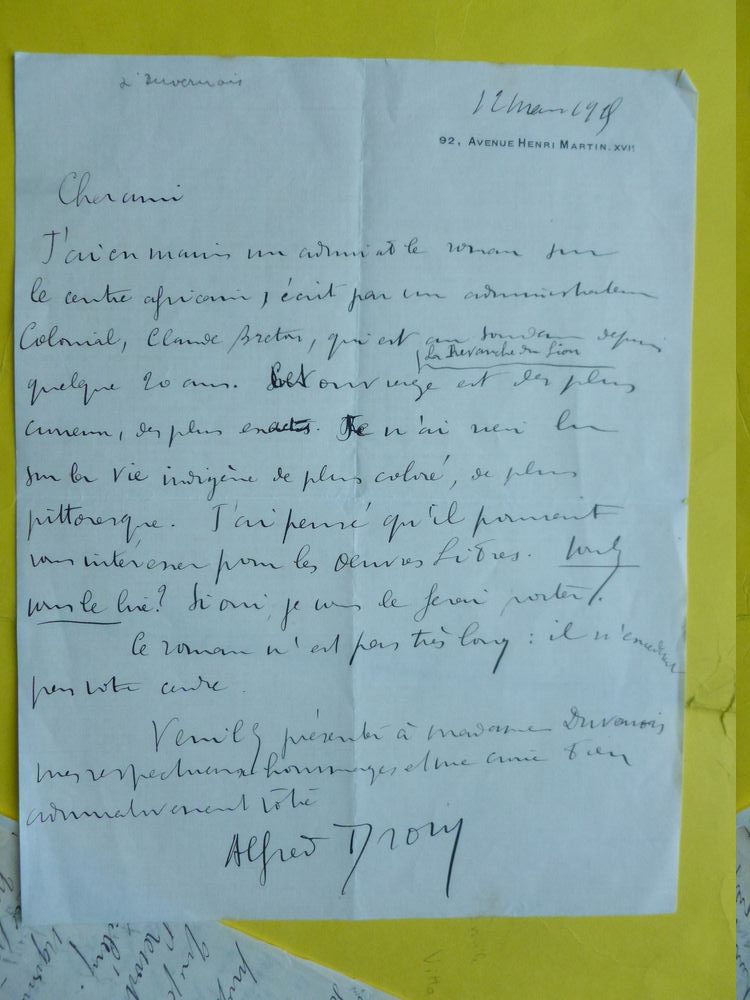 Duvernois
12 mars 19
92, AVENUE HENRI MARTIN. XVIe
Cher ami
J'ai en mains un admirable roman sur
le centre africain, écrit par un administrateur
Colonial, Claude Breton, qui est au Soudan depuis
La Revanche du Lion
quelque 20 ans. ouvrage est des plus
curieux, des plus exacts. Je n'ai rien lu
sur la vie indigène de plus coloré, de plus
pittoresque. J'ai pensé qu'il pourrait
vous intéresser pour les Oeuvres Libres. Voulez
vous le lire? Si oui, je vous le ferai porter.
Ce roman n'est pas très long : il n'excèderait
pas votre cadre.
Veuillez présenter à madame Duvernois
mes respectueux hommages et me croire bien
admirativement vôtre
Alfred Droin